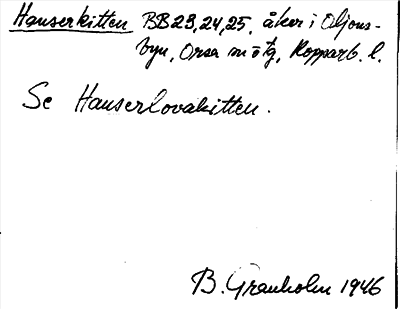 Hanserkitten BB23,24,25, åker i Oljons-
byn, Orsa sn ö tg, Kopparb. l.
Se Hanserlovakitten.
B. Granholm 1946